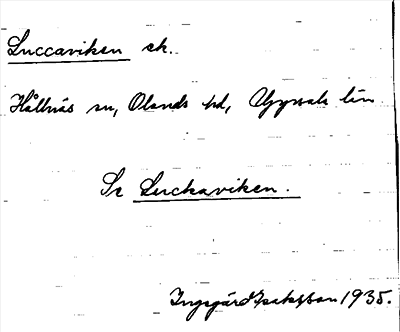 Luccaviken ek.
Hållnäs sn, Olands hd, Uppsala län
Se Luckaviken.
Ingegärd Isaksson 1935.